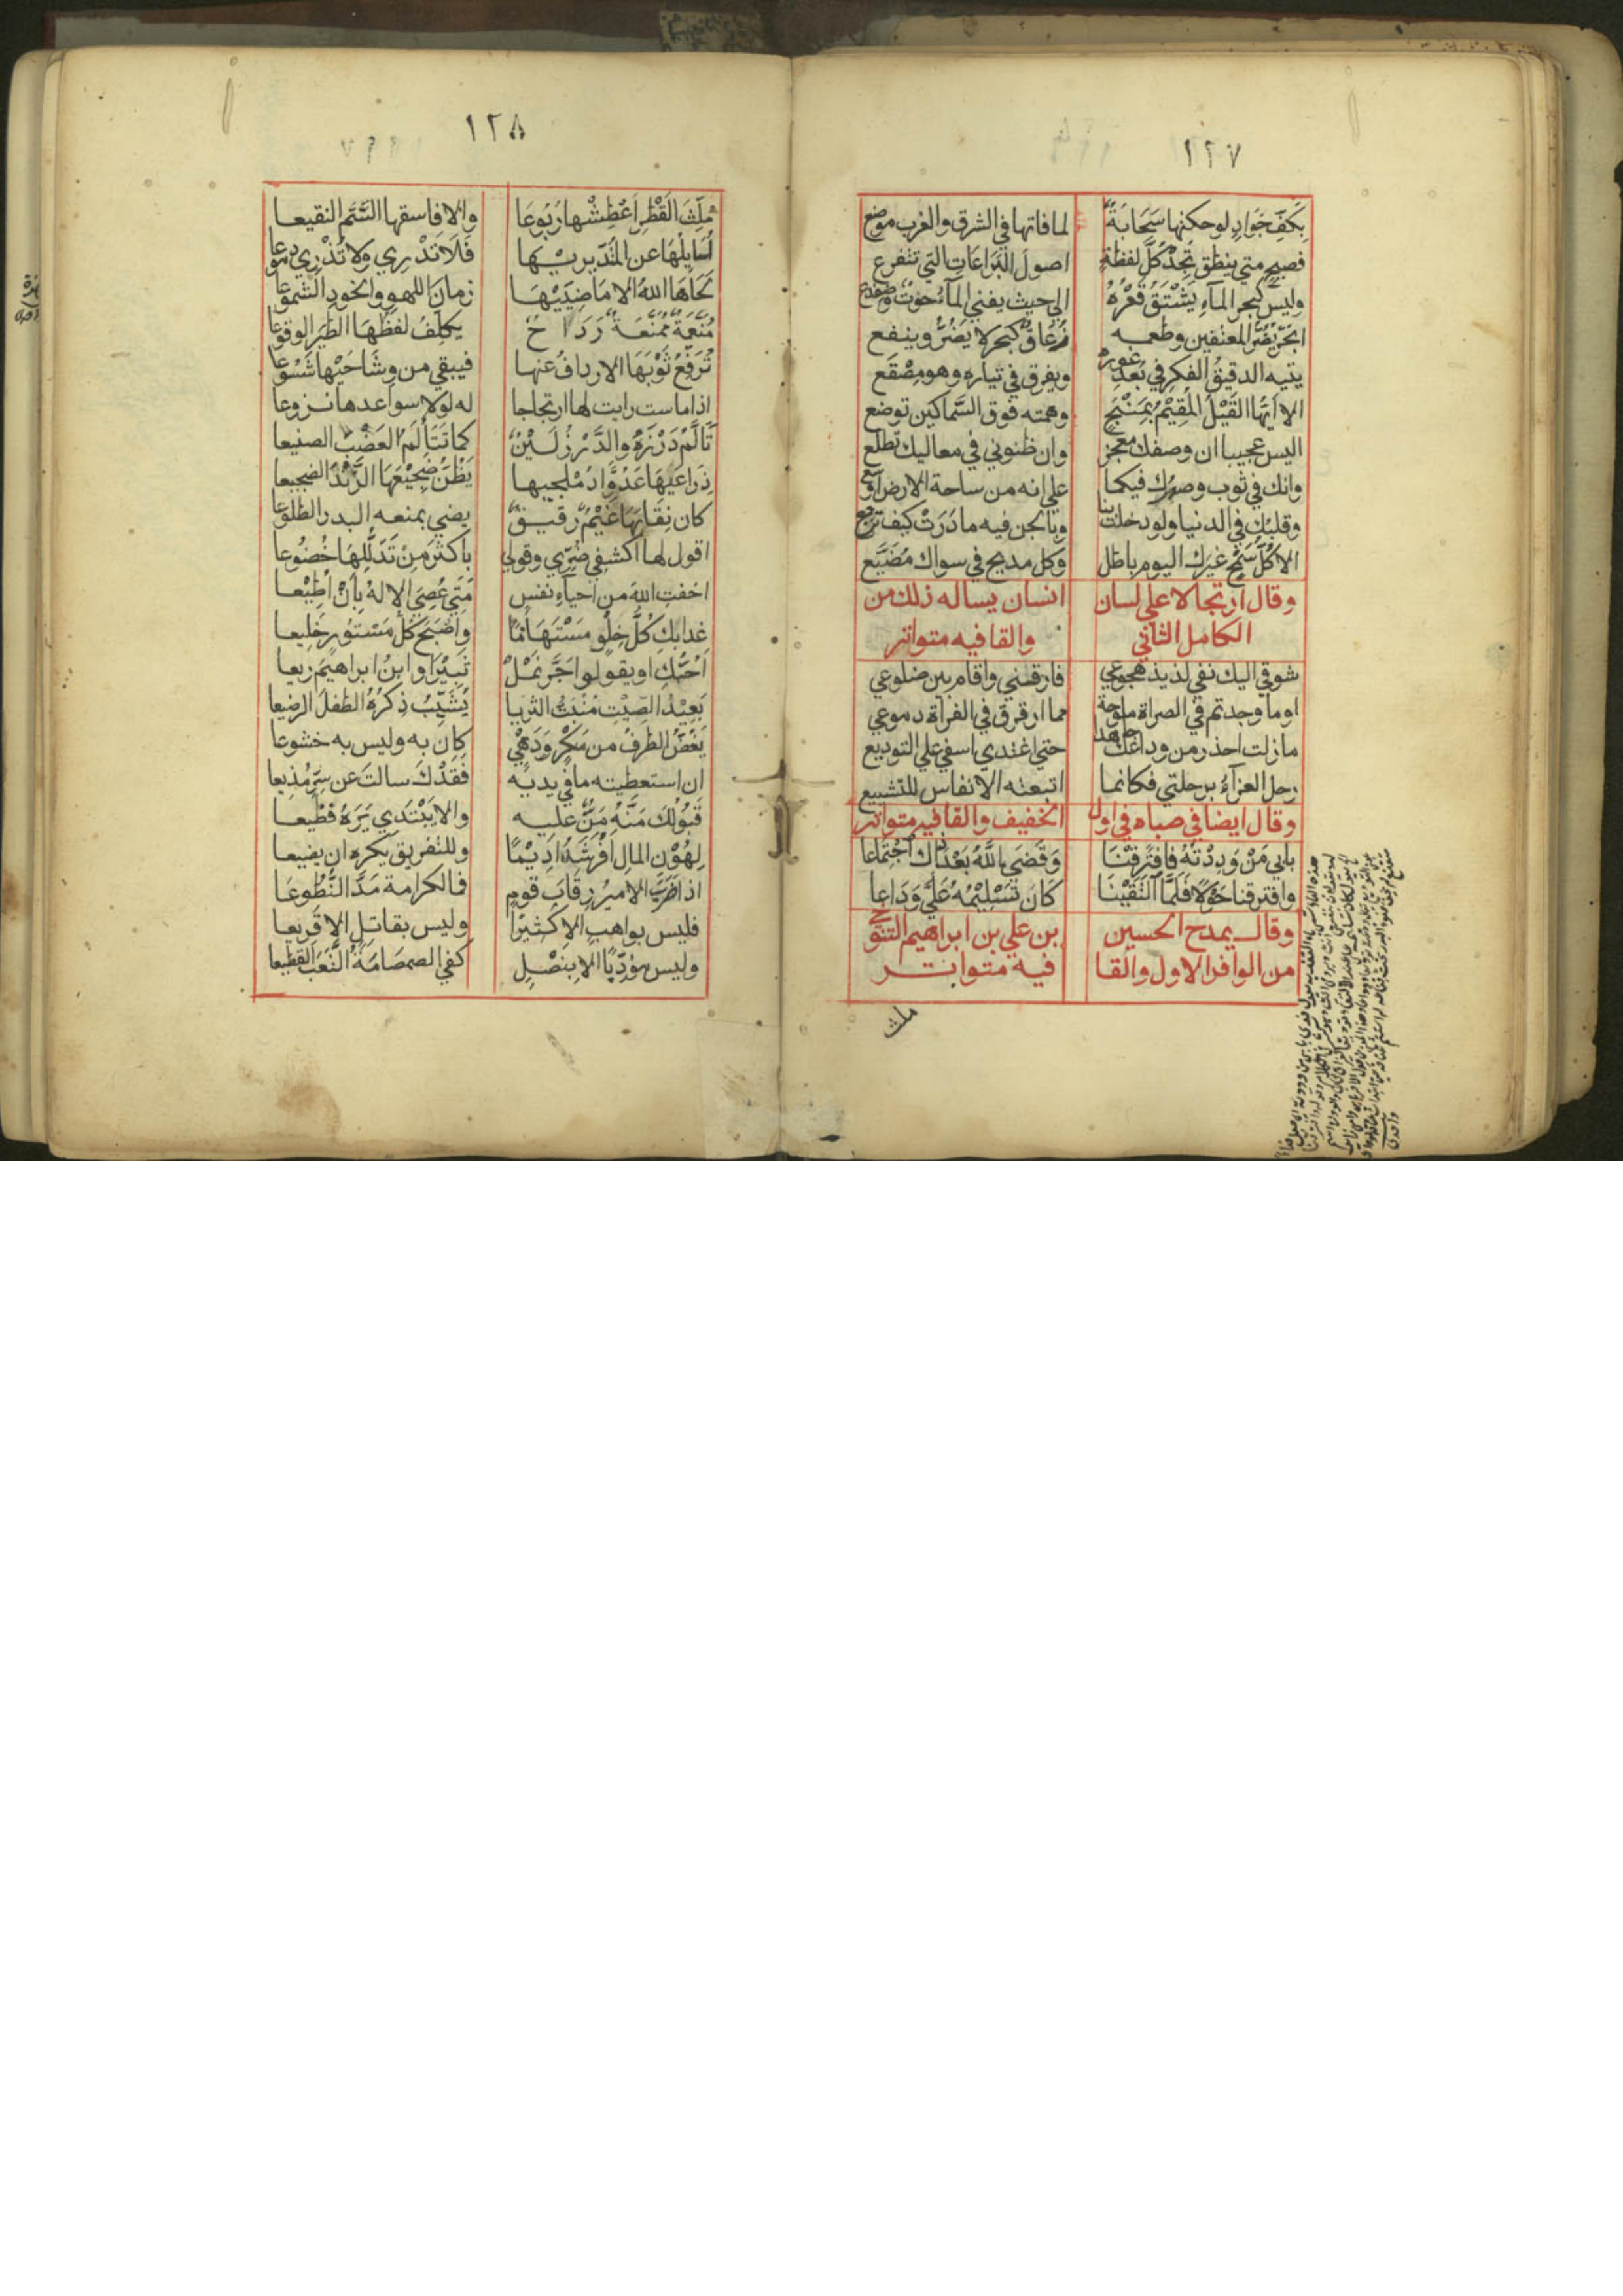 ١٢٧
بِكَفِّ جَوَادٍ لو حكتها سَحَابَةٌ لما فاتها في الشرق والغرب موضع
فصيحٍ متى ينطق تَجِدْ كلَّ لفظةٍ اصولَ البَرَاعَاتِ التي تتفرع
وليسَ كبحر الماءِ يَشْتَقُّ قَعْرَهُ الى حيث يفنى الماءُ حوتٌ وضفدع
ابَحْرٌ يَضُرُّ المعتفين وطعمه زُعَاقٌ كبحر لا يَضُرُّ وينفع
يتيه الدقيقُ الفكرِ في بُعْدِ غوره ويغرق في تياره وهو مِصْقَع
الا ايُّها القَيْلُ المُقِيْمُ بِمَنْبِجٍ وهمته فوق السَّماكين توضع
اليس عجيبا ان وصفك معجز وان ظنوني في معاليك تظلع
وانك في ثوب وصدرك فيكما على انه من ساحة الارض اوسع
وقلبك في الدنيا ولو دخلت بنا وبالجن فيه ما دَرَتْ كيف ترجع
الا كُلُّ سَمْحٍ غيرك اليوم باطل وكل مديح في سواك مُضَيَّع
وقال ارتجالا على لسان انسان يساله ذلك من
الكامل الثاني والقافيه متواتر
شوقي اليك نفى لذيذ هجوعي فارقتني واقام بين ضلوعي
او ما وجدتم في الصراة ملوحة مما ارقرق في الفراة دموعي
ما زلت احذر من وداعك جاهدا حتى اغتدى اسفي على التوديع
رحل العزآءُ برحلتي فكانما اتبعته الانفاس للتشييع
وقال ايضا في صباه في اول الخفيف والقافيه متواتر
بابي مَنْ وَدِدْتَهُ فَافْتَرَقْنَا وَقَضَى اللَّهُ بَعْدَ ذاك اجْتِمَاعا
وافترقنا حَوْلًا فَلَمَّا الْتَقَيْنَا كَانَ تَسْلِيْمُهُ عَلَيَّ وَدَاعا
وقال يمدح الحسين بن علي بن ابراهيم التنوخي
من الوافر الاول والقا فيه متواتر
ملث
١٢٨
مُلِثَّ القَطْرِ اَعْطِشْها رُبُوعَا والا فاسقها السَّمَّ النقيعا
اُسَايِلُهَا عن المُتَدَيِّريها فَلَا تَدْرِي ولا تُذْرِي دموعا
لَحَاهَا اللهُ الا مَاضِيَيْهَا زمانَ اللهو والخودَ الشموعا
مُنَعَّمَةٌ مُمَنَّعَةٌ رَدَاحٌ يكلِّفُ لفظُهَا الطَّيْرَ الوقوعا
تُرَفِّعُ ثَوْبَهَا الاردافُ عنها فيبقى من وِشَاحَيْها شَسُوْعا
اذا ماست رايت لها ارتجاجا له لولا سواعدها نزوعا
تَاَلَّمُ دَرْزَهُ والدَّرْزُ لَيْنٌ كما تَتَأَلَّمُ العَضْبَ الصنيعا
ذِرَاعَيْهَا عَدُوَّا دُمْلجيها يَظُنُّ ضَجِيْعُهَا الزَّنْدَ الضجيعا
كان نِقَابَهَا غَيْمٌ رقيقٌ يضي بمنعه البدر الطلوعا
اقول لها اكشفي ضُرِّي وقولي باكثَرَ مِنْ تَدَلُّلِهَا خُضُوعا
اخفتِ اللهَ من احياء نفس مَتَى عُصِيَ الاِلهُ بِاَنْ اُطِيْعا
غدا بك كُلُّ خِلْوٍ مستهَامًا واَصْبَحَ كُلُّ مَسْتُورٍ خَلِيعا
اُحبُّكِ او يقولوا جَرَّ نَمْلٌ ثَبِيْرًا وابنُ ابراهيمَ ريعا
بَعِيْدُ الصِّيْتِ مُنْبَثُّ السَّرايا يُشَيِّبُ ذِكْرُهُ الطفلَ الرضيعا
يَغُضُّ الطرفَ من مَكْرٍ وَدَهْيٍ كان به وليس به خشوعا
ان استعطيته ما في يديه فَقَدْكَ سالتَ عن سِرٍّ مُذِيعا
قَبُولُكَ مَنَّهُ مَنٌّ عليه والا يَبْتَدِي يَرَهُ فظيعا
لِهُوْنِ المالِ اَفْرَشَهُ اَدِيْمًا وللتفريق يكره ان يضيعا
اذا ضربَ الاميرُ رِقَابَ قومٍ فما لكرامة مَدَّ النُّطُوعَا
فليس بواهب الا كثيرًا وليس بقاتل الا قريعا
وليس مؤدِّبًا الا بِنَصْلٍ كفى الصمصامَةُ التَّعَبَ القطيعا